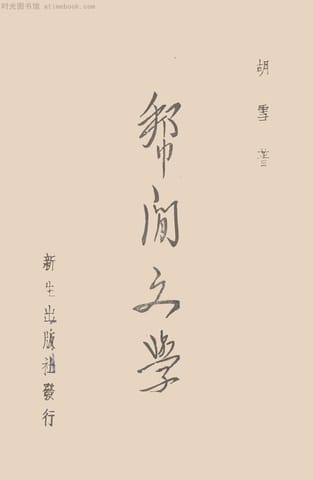 时光图书馆 · atimebook.com
胡雪著
幫閒文學
新生出版社發行